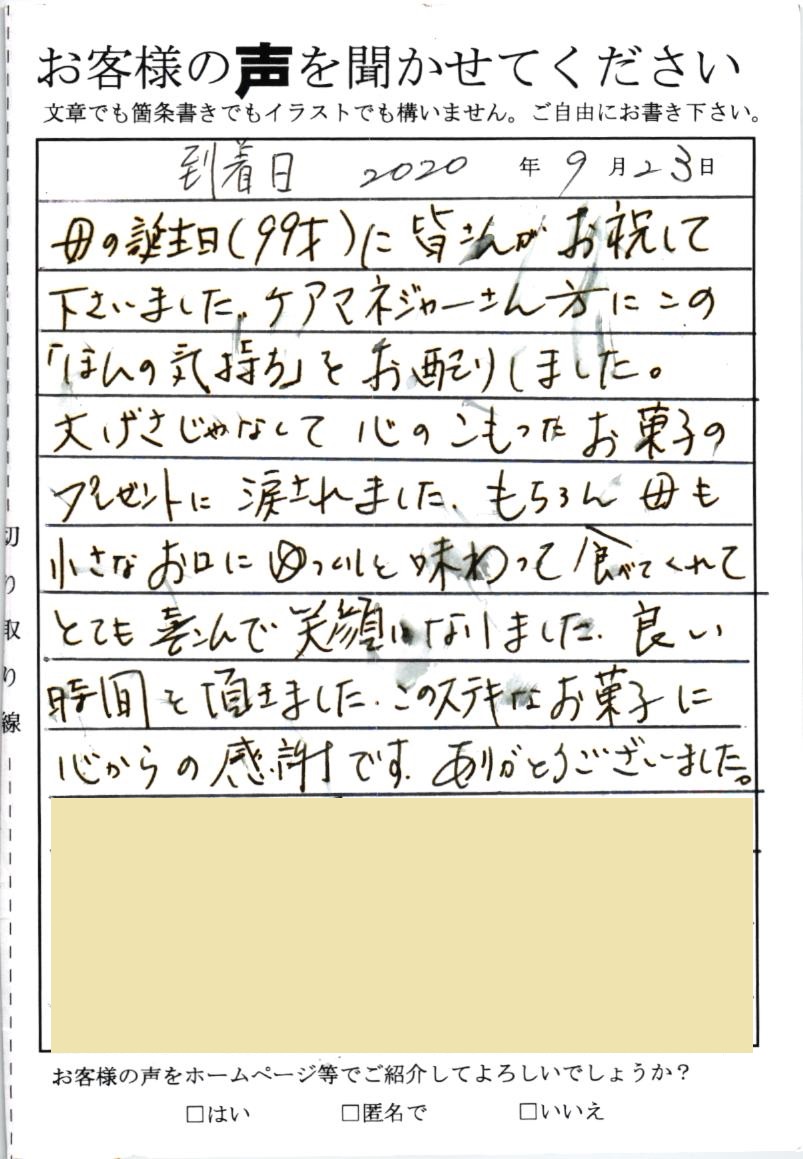 お客様の声を聞かせてください
文章でも箇条書きでもイラストでも構いません。ご自由にお書き下さい。
到着日 2020 年 9 月 23 日
母の誕生日(99才)に皆さんがお祝して
下さいました。ケアマネジャーさん方にこの
「ほんの気持ち」をお配りしました。
大げさじゃなくて心のこもったお菓子の
プレゼントに涙されました、もちろん母も
小さなお口にゆっくりと味わって食べてくれて
とても喜こんで笑顔になりました、良い
時間を頂きました、このステキなお菓子に
心からの感謝です、ありがとうございました。
切り取り線
お客様の声をホームページ等でご紹介してよろしいでしょうか?
□はい □匿名で □いいえ